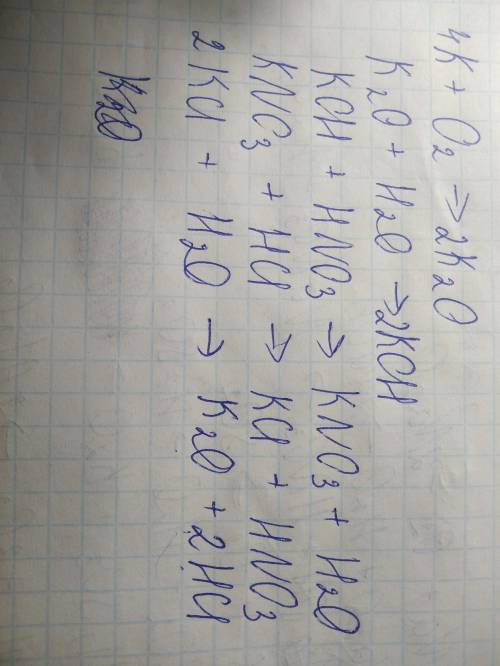 4K + O₂ → 2K₂O
K₂O + H₂O → 2KOH
KOH + HNO₃ → KNO₃ + H₂O
KNO₃ + HCl → KCl + HNO₃
2KCl + H₂O → K₂O + 2HCl
K₂O